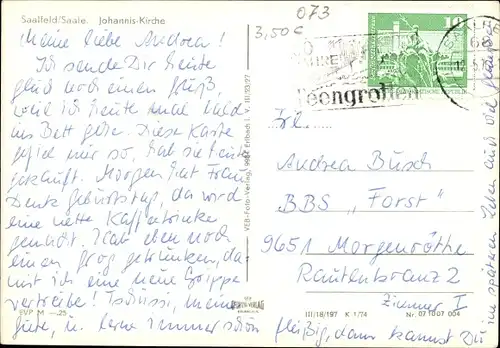 Saalfeld/Saale. Johannis-Kirche
073
3,50 €
10
Meine liebe Andrea!
Ich sende Dir heute
gleich noch einen Gruß,
weil ich heute mal bald
ins Bett gehe. Diese Karte
gefiel mir so, hab sie heute
gekauft. Morgen hat Frau
Geburtstag, da wird
eine nette Kaffeetrinke
gemacht. Hab eben noch
einen Grog getrunken, da-
mit ich eine neue Grippe
vertreibe! Tschüssi, meine
Gute, u. lerne immer schön
fleißig, dann kannst Du
im späteren Leben auch viel
VEB-Foto-Verlag, 9659 Erlbach i. V. III/93/97
Feengrotten
Frl.
Andrea Busch
BBS „Forst"
9651 Morgenröthe
Rautenkranz 2
Zimmer 1
EVP M -,25
III/18/197 K 1/74
Nr. 07 10 07 004